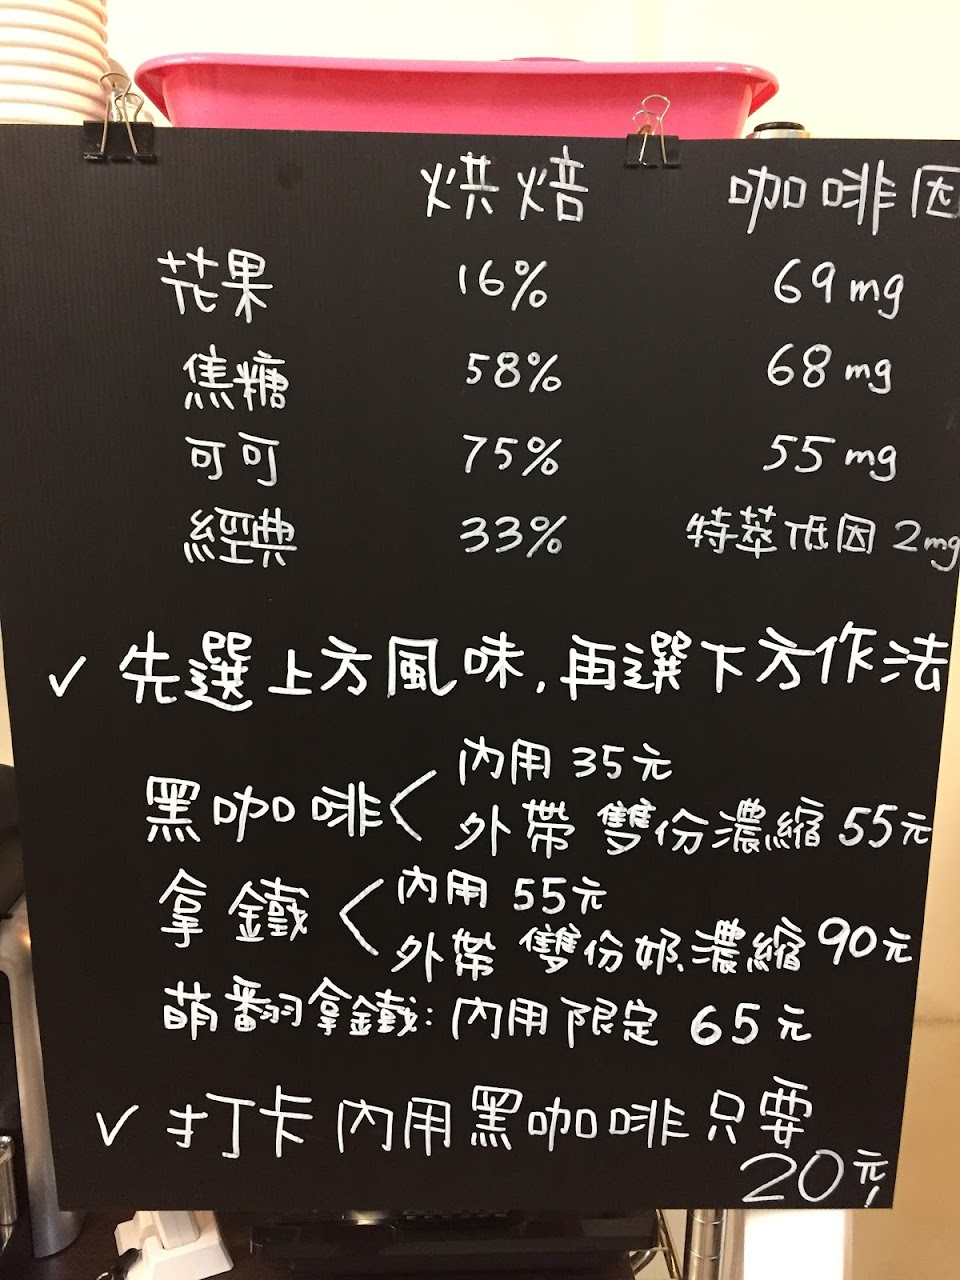 烘焙 咖啡因
花果 16% 69mg
焦糖 58% 68mg
可可 75% 55mg
經典 33% 特萃低因2mg
✓ 先選上方風味,再選下方作法
黑咖啡< 內用35元
外帶 雙份濃縮55元
拿鐵< 內用55元
外帶 雙份奶、濃縮90元
萌翻拿鐵:內用限定 65元
✓ 打卡內用黑咖啡只要
20元!